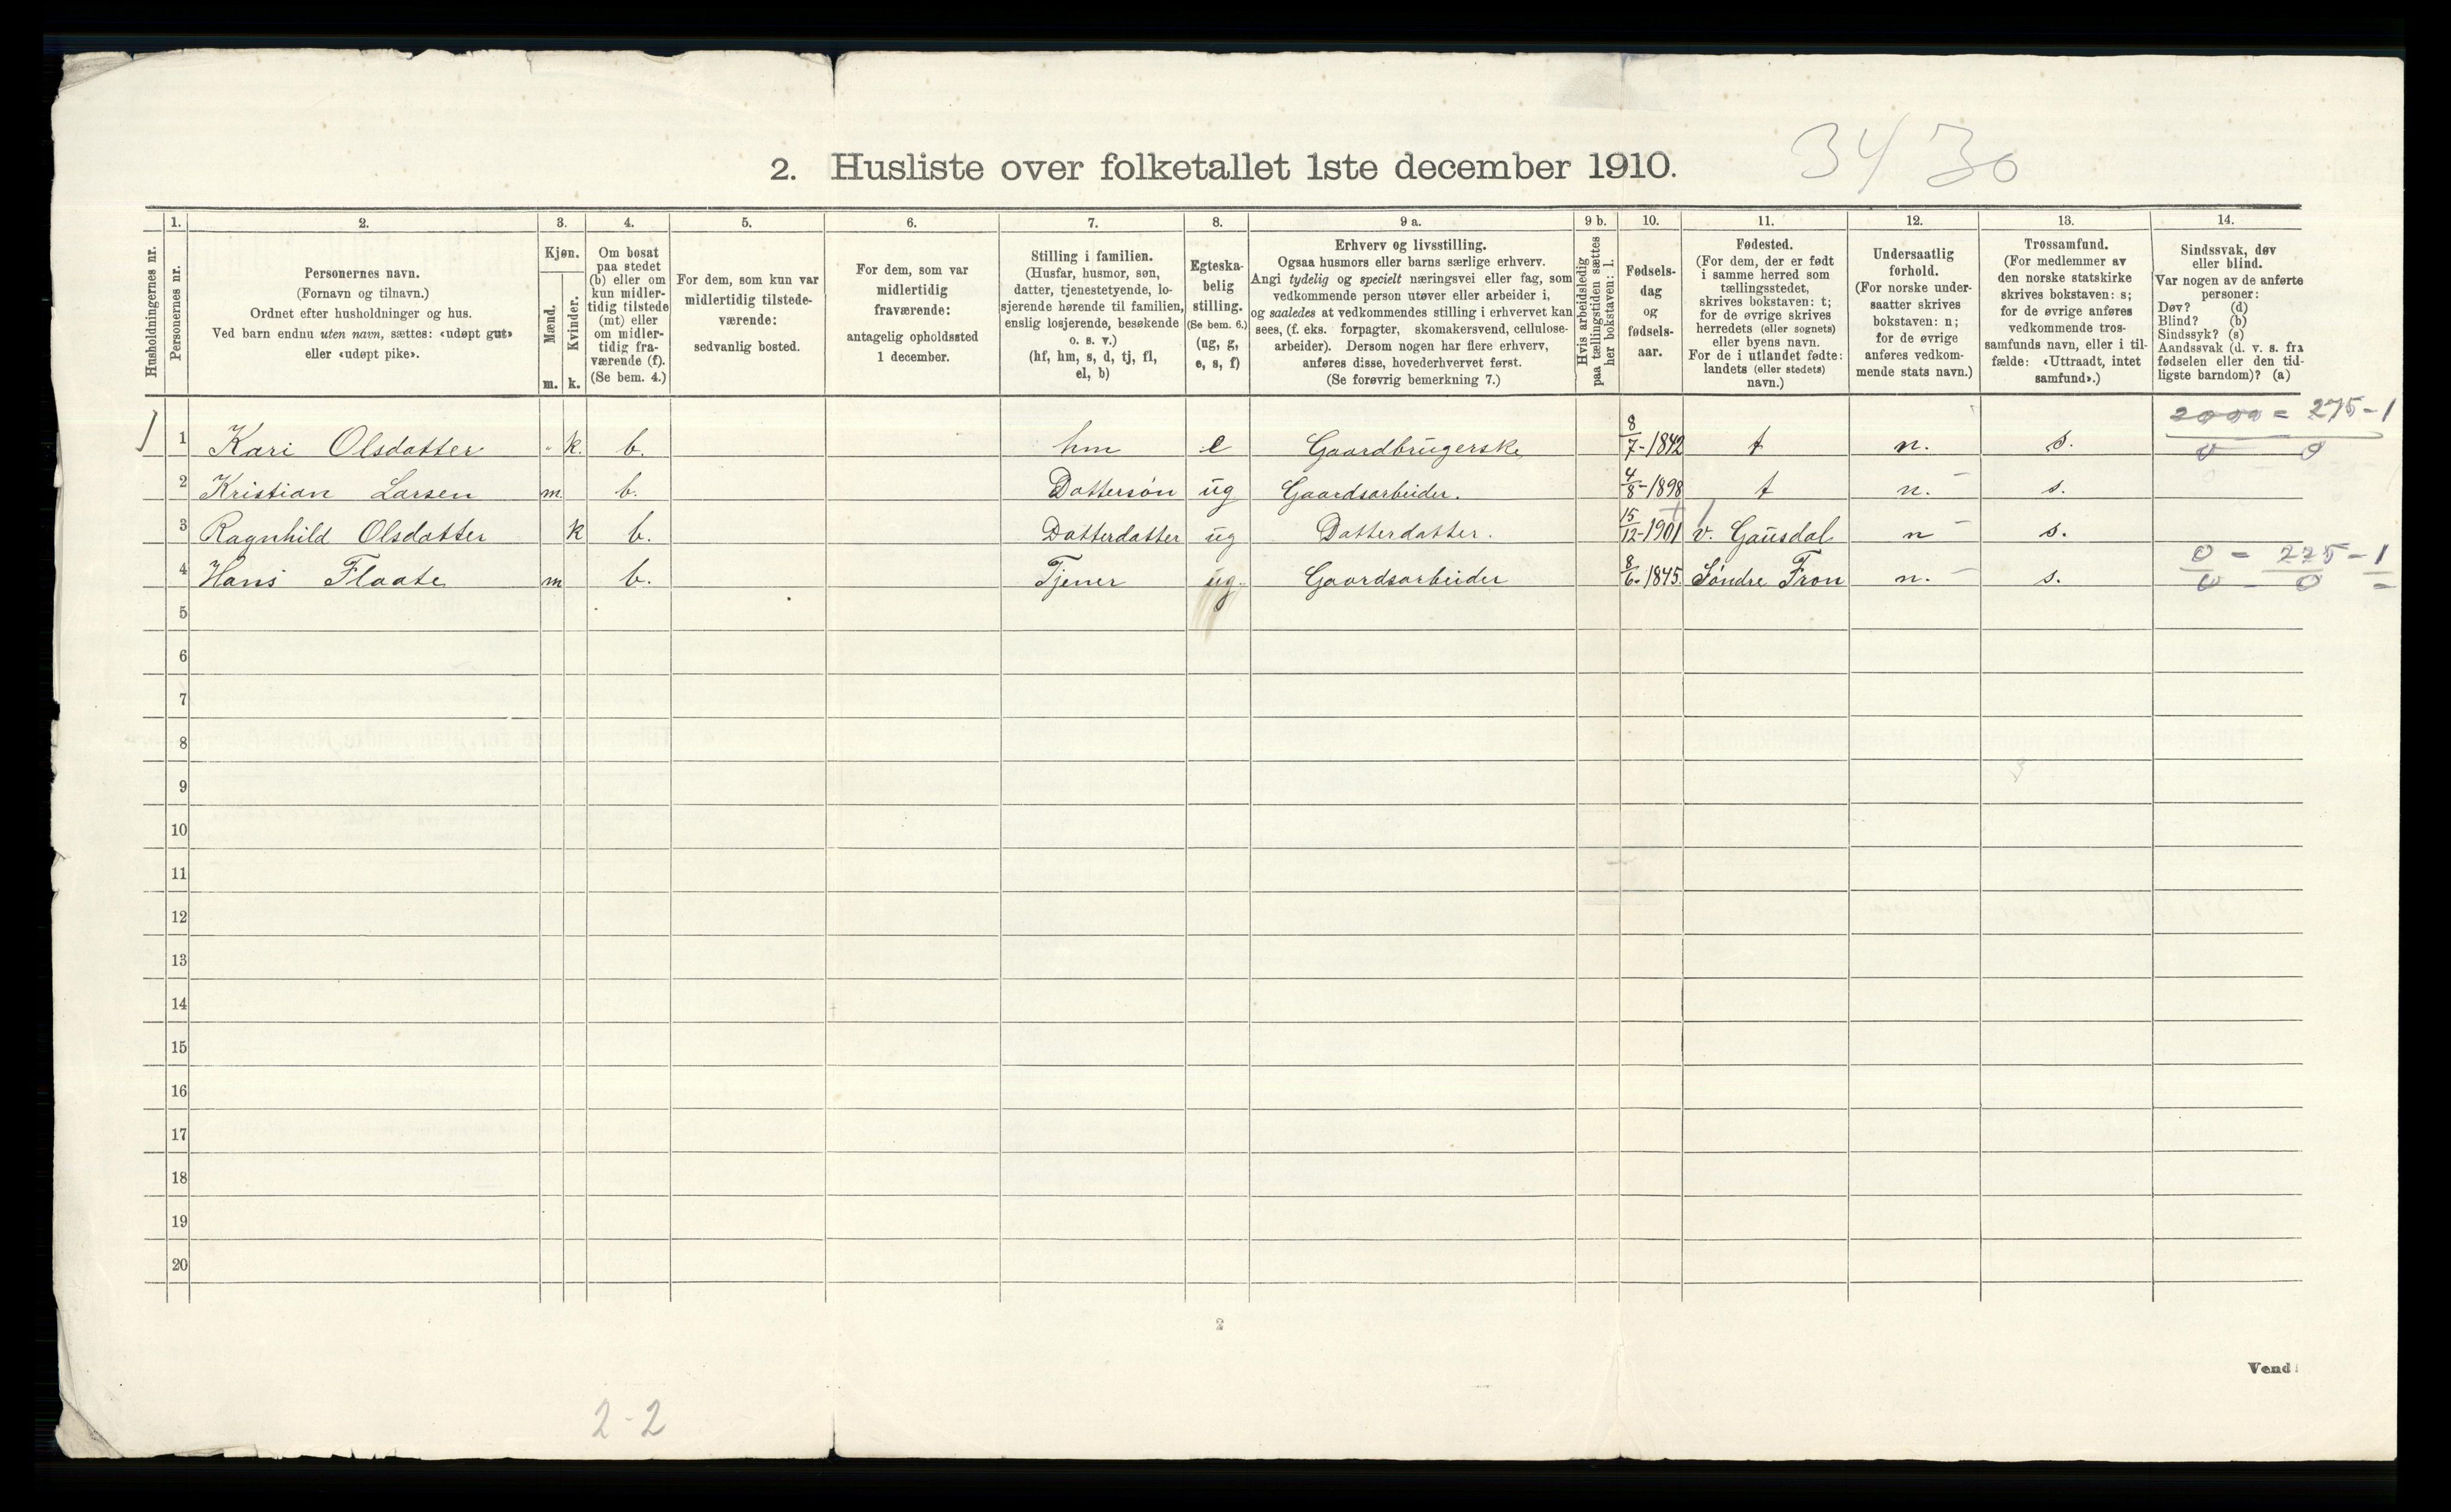 2. Husliste over folketallet 1ste december 1910.
34 30
1. 2. 3. 4. 5. 6. 7. 8. 9 a. 9 b. 10. 11. 12. 13. 14.
Husholdningernes nr.
Personernes nr.
Personernes navn.
(Fornavn og tilnavn.)
Ordnet efter husholdninger og hus.
Ved barn endnu uten navn, sættes: «udøpt gut»
eller «udøpt pike».
Kjøn.
Mænd.
Kvinder.
m. k.
Om bosat
paa stedet
(b) eller om
kun midler-
tidig tilstede
(mt) eller
om midler-
tidig fra-
værende (f).
(Se bem. 4.)
For dem, som kun var
midlertidig tilstede-
værende:
sedvanlig bosted.
For dem, som var
midlertidig
fraværende:
antagelig opholdssted
1 december.
Stilling i familien.
(Husfar, husmor, søn,
datter, tjenestetyende, lo-
sjerende hørende til familien,
enslig losjerende, besøkende
o. s. v.)
(hf, hm, s, d, tj, fl,
el, b)
Egteska-
belig
stilling.
(Se bem. 6.)
(ug, g,
e, s, f)
Erhverv og livsstilling.
Ogsaa husmors eller barns særlige erhverv.
Angi tydelig og specielt næringsvei eller fag, som
vedkommende person utøver eller arbeider i,
og saaledes at vedkommendes stilling i erhvervet kan
sees, (f. eks. forpagter, skomakersvend, cellulose-
arbeider). Dersom nogen har flere erhverv,
anføres disse, hovederhvervet først.
(Se forøvrig bemerkning 7.)
Hvis arbeidsledig
paa tællingstiden sættes
her bokstaven: l.
Fødsels-
dag
og
fødsels-
aar.
Fødested.
(For dem, der er født
i samme herred som
tællingsstedet,
skrives bokstaven: t;
for de øvrige skrives
herredets (eller sognets)
eller byens navn.
For de i utlandet fødte:
landets (eller stedets)
navn.)
Undersaatlig
forhold.
(For norske under-
saatter skrives
bokstaven: n;
for de øvrige
anføres vedkom-
mende stats navn.)
Trossamfund.
(For medlemmer av
den norske statskirke
skrives bokstaven: s;
for de øvrige anføres
vedkommende tros-
samfunds navn, eller i til-
fælde: «Uttraadt, intet
samfund».)
Sindssvak, døv
eller blind.
Var nogen av de anførte
personer:
Døv? (d)
Blind? (b)
Sindssyk? (s)
Aandssvak (d. v. s. fra
fødselen eller den tid-
ligste barndom)? (a)
= 275-1
0 0
1 1 Kari Olsdatter k. b. hm e Gaardbrugerske 8/7-1842 t n. s.
2 Kristian Larsen m. b. Dattersøn ug Gaardsarbeider. 4/8-1898 t n. s.
3 Ragnhild Olsdatter k b. Datterdatter ug Datterdatter. 15/12-1901 v. Gausdal n s.
0 = 225-1
0 - 0 =
4 Hans Flaate m b. Tjener ug. Gaardsarbeider 8/6-1845. Søndre Fron n. s.
5
6
7
8
9
10
11
12
13
14
15
16
17
18
19
20
2
Vend
2-2